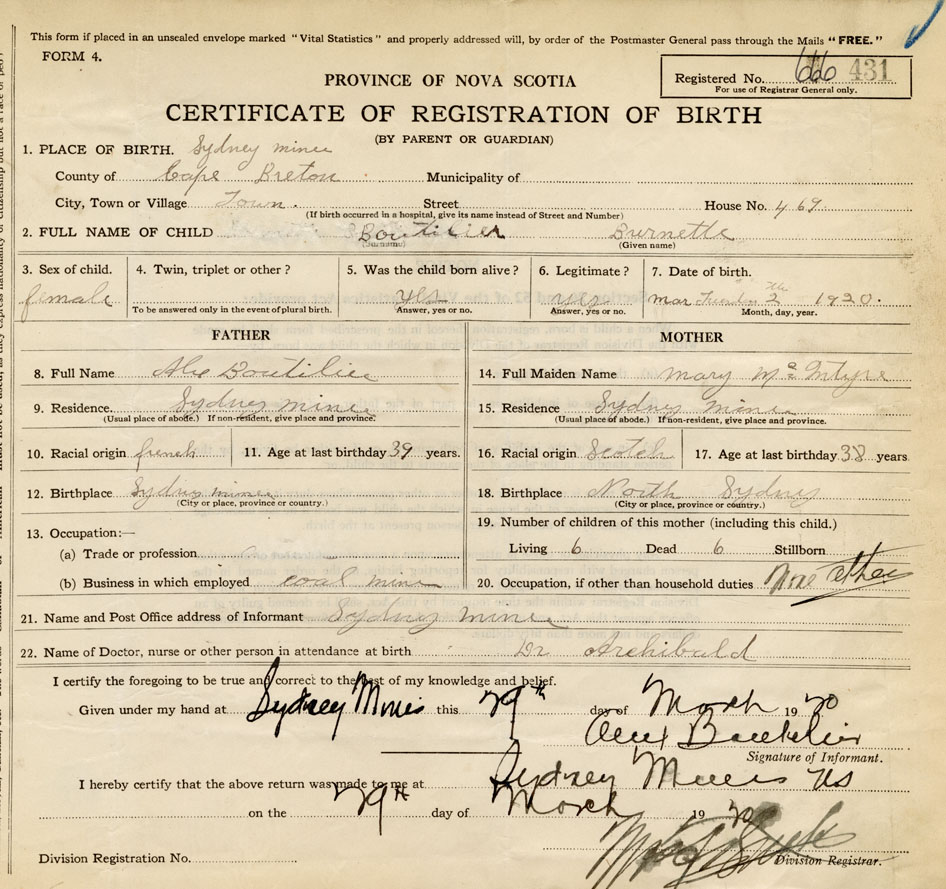 This form if placed in an unsealed envelope marked "Vital Statistics" and properly addressed will, by order of the Postmaster General pass through the Mails "FREE."
FORM 4.
PROVINCE OF NOVA SCOTIA
Registered No. 666 431
For use of Registrar General only.
CERTIFICATE OF REGISTRATION OF BIRTH
(BY PARENT OR GUARDIAN)
1. PLACE OF BIRTH. Sydney mines
County of Cape Breton Municipality of
City, Town or Village Town. Street House No. 469
(If birth occurred in a hospital, give its name instead of Street and Number)
2. FULL NAME OF CHILD Boutilier Burnette
(Surname) (Given name)
3. Sex of child. 4. Twin, triplet or other? 5. Was the child born alive? 6. Legitimate? 7. Date of birth.
female yes yes mar 2 1920.
To be answered only in the event of plural birth. Answer, yes or no. Answer, yes or no. Month, day, year.
FATHER MOTHER
8. Full Name Alex Boutilier 14. Full Maiden Name mary Mc Intyre
9. Residence. Sydney mines 15. Residence Sydney mines
(Usual place of abode.) If non-resident, give place and province. (Usual place of abode.) If non-resident, give place and province.
10. Racial origin french 11. Age at last birthday 39 years. 16. Racial origin Scotch 17. Age at last birthday 38 years.
12. Birthplace Sydney mines 18. Birthplace North Sydney
(City or place, province or country.) (City or place, province or country.)
13. Occupation:— 19. Number of children of this mother (including this child.)
(a) Trade or profession Living 6 Dead 6 Stillborn
(b) Business in which employed coal mine 20. Occupation, if other than household duties None other
21. Name and Post Office address of Informant Sydney mines
22. Name of Doctor, nurse or other person in attendance at birth Dr Archibald
I certify the foregoing to be true and correct to the best of my knowledge and belief.
Given under my hand at Sydney Mines this 29th day of March 1920
Alex Boutilier
Signature of Informant.
I hereby certify that the above return was made to me at Sydney Mines NS
on the 29th day of March 1920
Division Registration No. Division Registrar.